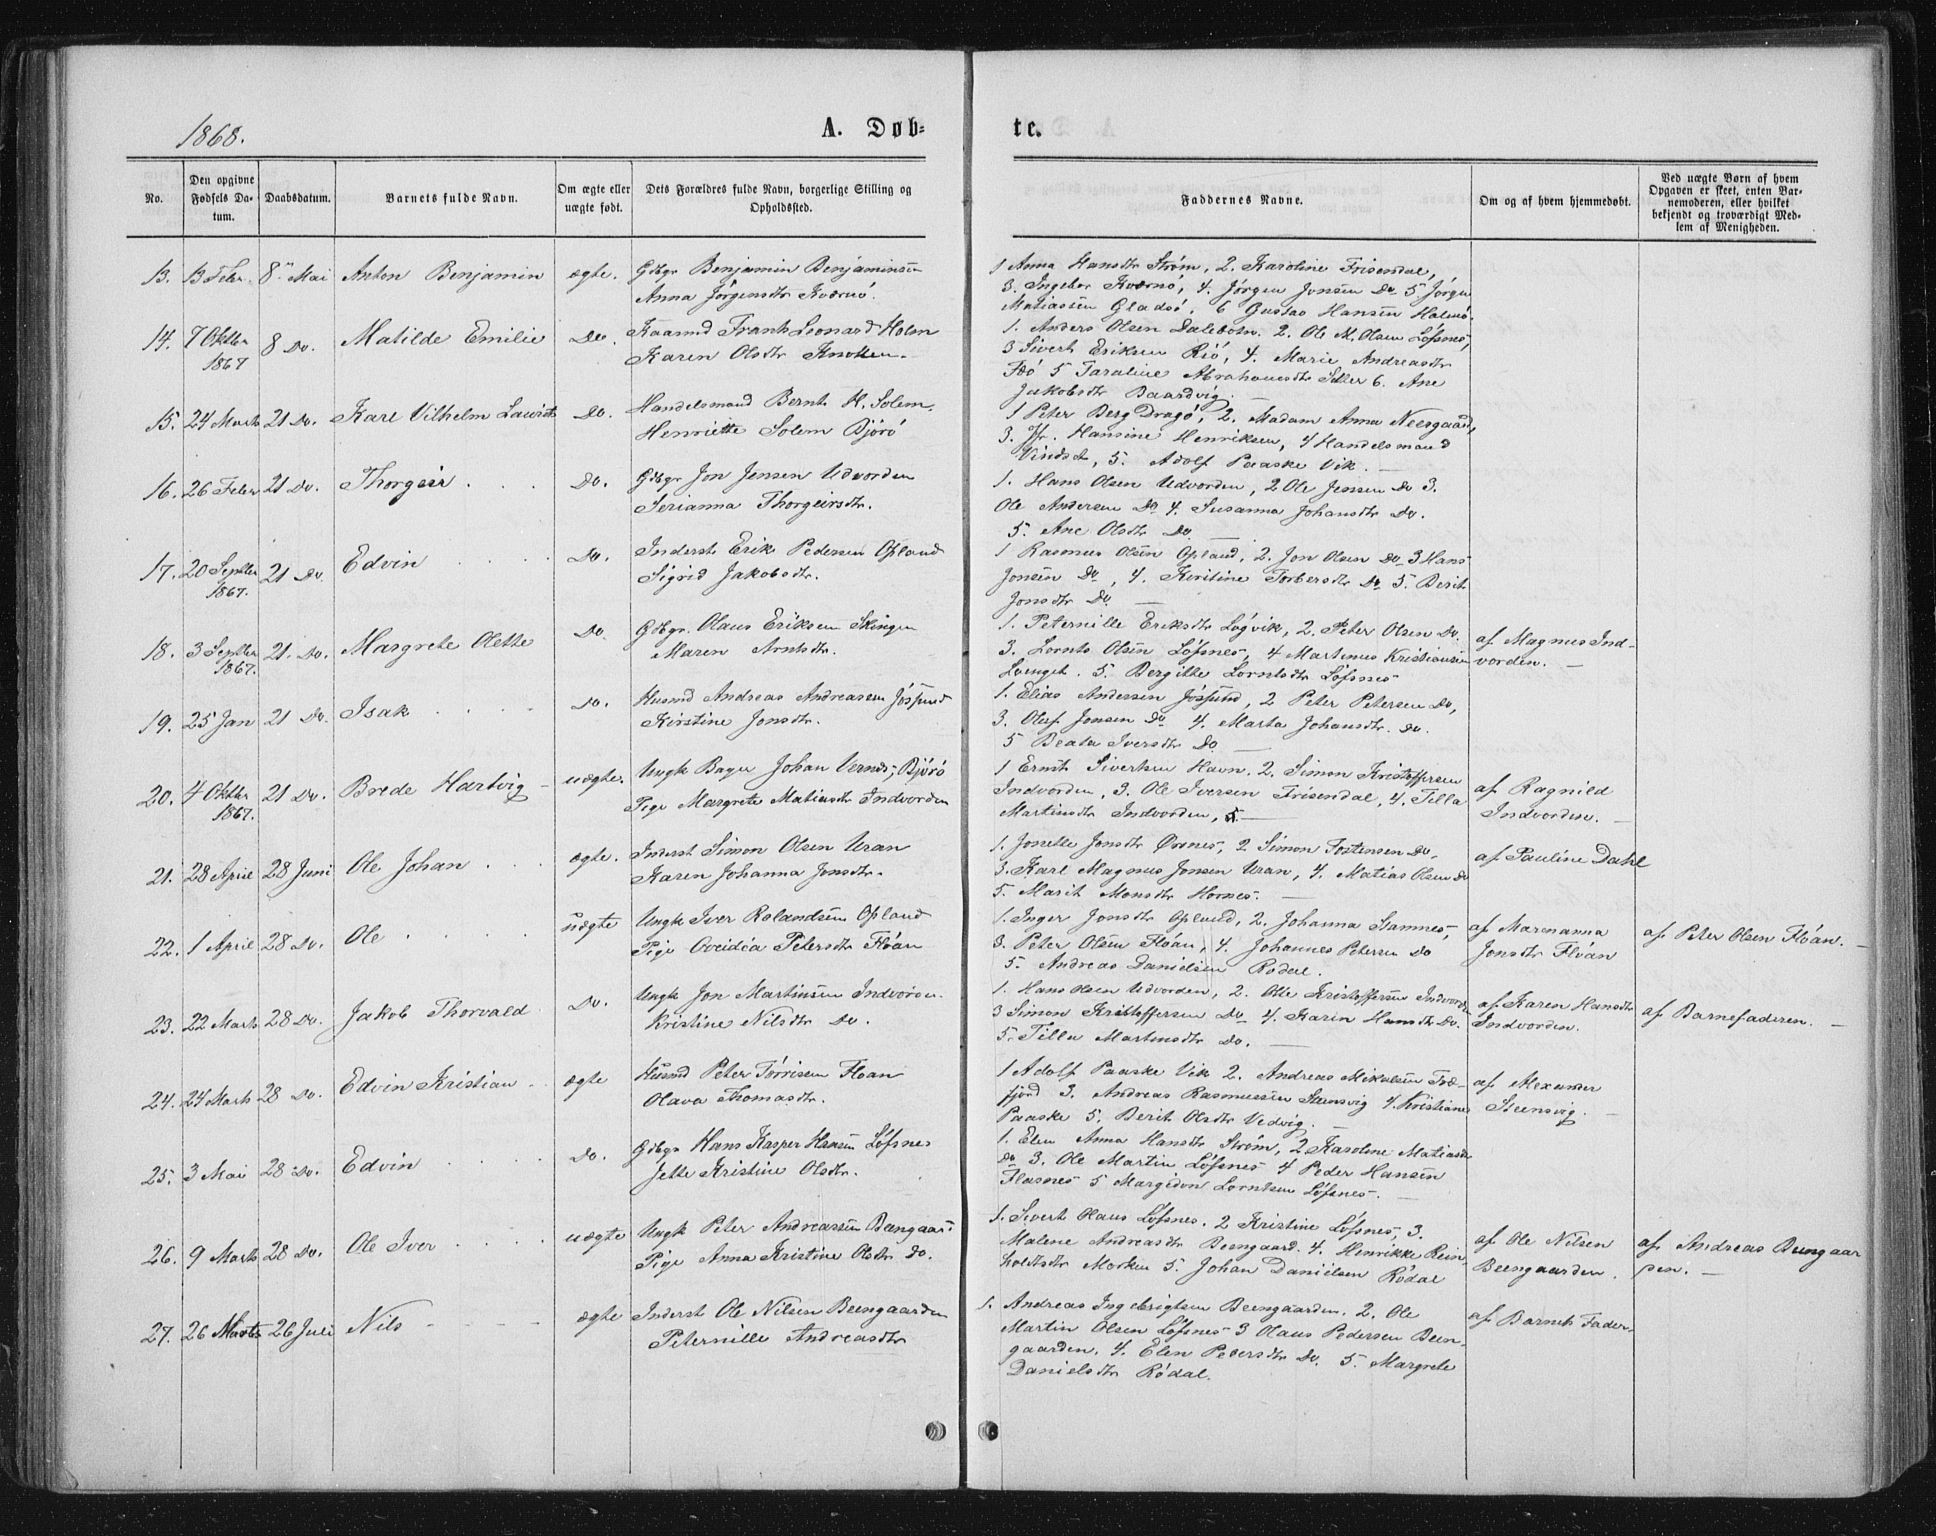 1868.
A. Døb-
te.
No.
Den opgivne Fødsels Da-tum.
Daabsdatum.
Barnets fulde Navn.
Om ægte eller uægte født.
Dets Forældres fulde Navn, borgerlige Stilling og Opholdssted.
Faddernes Navne.
Om og af hvem hjemmedøbt.
Ved uægte Børn af hvem Opgaven er skeet, enten Bar-nemoderen, eller hvilket bekjendt og troværdigt Med-lem af Menigheden.
13. 13 Febr. 8de Mai Anton Benjamin ægte. Gdbgr Benjamin Benjaminsen
Anna Jørgensdtr Kværnø.
1 Anna Hansdtr Strøm, 2. Karoline Frisendal,
3. Ingebor Kværnø, 4. Jørgen Jonsen Do 5 Jørgen
Matiassen Gladsø, 6 Gustav Hansen Halmø.
14. 7 Oktbr 1867 8 Do. Matilde Emilie Do. Kaarmd Frants Leonard Holm
Karen Olsdtr Knotten.
1. Anders Olsen Dalebotn. 2. Ole M. Olsen Løfsnes,
3 Sivert Eriksen Risø, 4. Marie Andreasdtr
5 Taraline Abrahamsdtr Seller 6. Ane
Jakobsdtr Baardvig.
15. 24 Marts 21 Do. Karl Vilhelm Laurits Do. Handelsmand Bernt H. Solem.
Henriette Solem Bjørø
1 Peter Berg Dragø, 2. Madam Anna Neesgaard,
3. Jfr. Hansine Henriksen, 4 Handelsmand
Vindset, 5. Adolf Paaske Vik.
16. 26 Febr 21 Do. Thorgeir Do. Gdbgr Jon Jensen Udvorden
Serianna Thorgeirsdtr.
1. Hans Olsen Udvorden, 2 Ole Jensen Do 3.
Ole Andersen Do 4. Susanna Johansdtr Do.
5. Ane Olsdtr Do
17. 20 Septbr 1867. 21 Do. Edvin Do. Inderst Erik Pedersen Opland
Sigrid Jakobsdtr.
1 Rasmus Olsen Opland, 2. Jon Olsen Do 3 Hans
Jonsen Do, 4. Kiritine Torbersdtr Do 5. Berit
Jonsdtr Do.
18. 3 Septbr 1867. 21. Do. Margrete Olette Do. Gdbgr. Olaus Eriksen Skingen
Maren Arntsdtr.
1. Peternille Eriksdtr Løgvik, 2. Peter Olsen Do.
3. Lornts Olsen Løfsnes, 4 Martinus Kristiansen
Længet. 5. Bergitte Lorntsdtr Løfsnes
af Magnus Ind-
vorden.
19. 25 Jan 21 Do. Isak Do. Husmd Andreas Andreassen Jøssund
Kirstine Jonsdtr.
1. Elias Andersen Jøssund, 2 Peter Petersen Do,
3. Oluf Jonsen Do 4. Marta Johansdtr. Do.
5 Beata Iversdtr Do
20. 4 Oktbr 1867. 21 Do. Brede Hartvig uægte. Ungk Bager Johan Vernes, Bjørø
Pige Margrete Matiasdtr Indvorden
1 Ernst Sivertsen Havn. 2. Simon Kristoffersen
Indvorden, 3. Ole Iversen Frisendal, 4. Tilla
Martinsdtr Indvorden, 5.
af Ragnild
Indvorden.
21. 28 April 28 Juni Ole Johan ægte. Inderst Simon Olsen Uran
Karen Johanna Jonsdtr.
1. Jonette Jonsdtr Ørsnes, 2 Simon Tostensen Do.
3. Karl Magnus Jonsen Uran, 4. Matias Olsen Do
5. Marit Monsdtr Hornes.
af Pauline Dahl
22. 1 April 28 Do. Ole uægte Ungk Iver Rolandsen Opland
Pige Oveidéa Petersdtr Fløan
1. Inger Jonsdtr Opland, 2. Johanna Stamnes,
3. Peter Olsen Fløan, 4. Johannes Petersen Do
5. Andreas Danielsen Rødal.
af Marenanna
Jonsdtr Fløan
af Peter Olsen Fløan.
23. 22 Marts 28 Do. Jakob Thorvald Do. Ungk Jon Martinsen Indvorden.
Kristine Nilsdtr Do.
1. Hans Olsen Udvorden, 2. Ole Kristoffersen Indvorden
3 Simon Kristoffersen Do 4. Karin Hansdtr Do.
5. Tilla Martinsdtr Do.
af Karen Hansdtr
Indvorden.
af Barnefaderen.
24. 24 Marts 28 Do. Edvin Kristian ægte Husmd Peter Tørrisen Floan
Olava Thomasdtr.
1 Adolf Paaske Vik 2. Andreas Mikalsen Træ-
fjord 3. Andreas Rasmussen Steensvig 4. Kristiane
Paaske 5. Berit Olsdtr Vedvig.
af Alexander
Steensvig.
25. 3 Mai 28 Do. Edvin Do. Gdbgr Hans Kasper Hansen Løfsnes
Jette Kristine Olsdtr.
1. Elen Anna Hansdtr Strøm, 2 Karoline Matiasdtr
Do 3. Ole Martin Løfsnes 4 Peder Hansen
Flasnes 5 Margidon Lorntsen Løfsnes.
26. 9 Marts 28 Do. Ole Iver uægte Ungk Peter Andreassen Beengaard
Pige Anna Kristine Olsdtr Do.
1. Sivert Olaus Løfsnes. 2 Kristine Løfsnes, 3.
Malene Andreasdtr Beengaard. 4. Hinrikke Rein
holtsdtr Morken 5. Johan Danielsen Rødal
af Ole Nilsen
Beengaarden.
af Andreas Beengaar
den.
27. 26 Marts 26 Juli Nils ægte Inderst Ole Nilsen Beengaarden
Peternille Andreasdtr
1. Andreas Ingebrigtsen Beengaarden. 2. Ole
Martin Olsen Løfsnes 3 Olaus Pedersen Been-
gaarden. 4. Elen Pedersdtr Do. 5. Margrete
Danielsdtr Rødal.
af Barnets Fader.